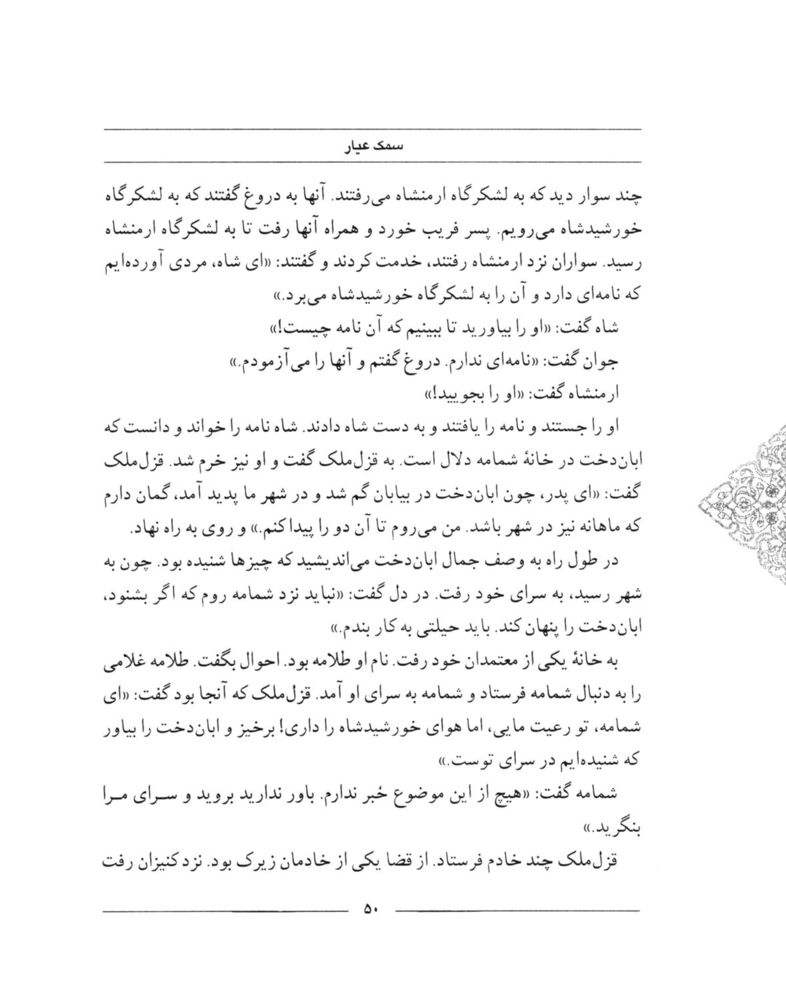 سمک عیار
چند سوار دید که به لشکرگاه ارمنشاه می‌رفتند. آنها به دروغ گفتند که به لشکرگاه
خورشیدشاه می‌رویم. پسر فریب خورد و همراه آنها رفت تا به لشکرگاه ارمنشاه
رسید. سواران نزد ارمنشاه رفتند، خدمت کردند و گفتند: «ای شاه، مردی آورده‌ایم
که نامه‌ای دارد و آن را به لشکرگاه خورشیدشاه می‌برد.»
شاه گفت: «او را بیاورید تا ببینیم که آن نامه چیست!»
جوان گفت: «نامه‌ای ندارم. دروغ گفتم و آنها را می‌آزمودم.»
ارمنشاه گفت: «او را بجویید!»
او را جستند و نامه را یافتند و به دست شاه دادند. شاه نامه را خواند و دانست که
ابان‌دخت در خانهٔ شمامه دلال است. به قزل‌ملک گفت و او نیز خرم شد. قزل‌ملک
گفت: «ای پدر، چون ابان‌دخت در بیابان گم شد و در شهر ما پدید آمد، گمان دارم
که ماهانه نیز در شهر باشد. من می‌روم تا آن دو را پیدا کنم.» و روی به راه نهاد.
در طول راه به وصف جمال ابان‌دخت می‌اندیشید که چیزها شنیده بود. چون به
شهر رسید، به سرای خود رفت. در دل گفت: «نباید نزد شمامه روم که اگر بشنود،
ابان‌دخت را پنهان کند. باید حیلتی به کار بندم.»
به خانهٔ یکی از معتمدان خود رفت. نام او طلامه بود. احوال بگفت. طلامه غلامی
را به دنبال شمامه فرستاد و شمامه به سرای او آمد. قزل‌ملک که آنجا بود گفت: «ای
شمامه، تو رعیت مایی، اما هوای خورشیدشاه را داری! برخیز و ابان‌دخت را بیاور
که شنیده‌ایم در سرای توست.»
شمامه گفت: «هیچ از این موضوع خبر ندارم. باور ندارید بروید و سرای مرا
بنگرید.»
قزل‌ملک چند خادم فرستاد. از قضا یکی از خادمان زیرک بود. نزد کنیزان رفت
۵۰